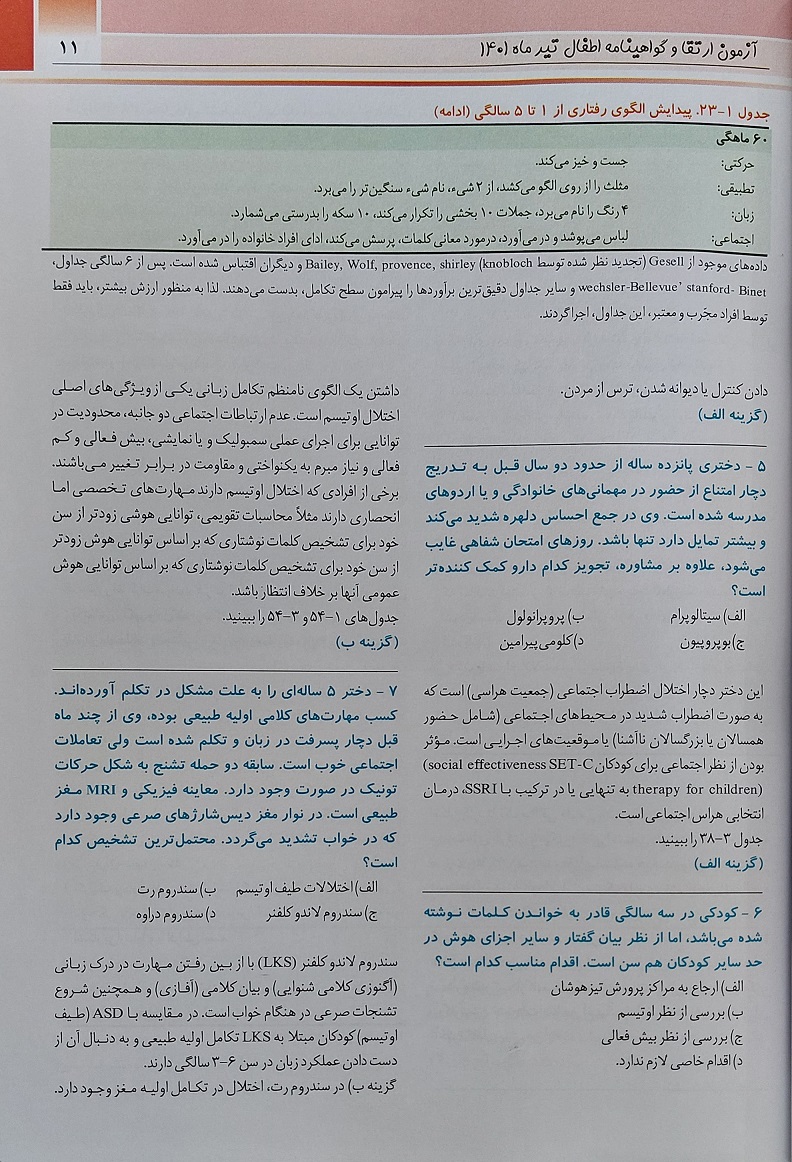 آزمون ارتقا و گواهینامه اطفال تیر ماه ۱۴۰۱
۱۱
جدول ۱-۲۳. پیدایش الگوی رفتاری از ۱ تا ۵ سالگی (ادامه)
۶۰ ماهگی
حرکتی: جست و خیز می‌کند.
تطبیقی: مثلث را از روی الگو می‌کشد، از ۲ شیء، نام شیء سنگین‌تر را می‌برد.
زبان: ۴ رنگ را نام می‌برد، جملات ۱۰ بخشی را تکرار می‌کند، ۱۰ سکه را بدرستی می‌شمارد.
اجتماعی: لباس می‌پوشد و در می‌آورد، درمورد معانی کلمات، پرسش می‌کند، ادای افراد خانواده را در می‌آورد.
داده‌های موجود از Gesell (تجدید نظر شده توسط knobloch) Bailey, Wolf, provence, shirley و دیگران اقتباس شده است. پس از ۶ سالگی جداول،
wechsler-Bellevue’ stanford- Binet و سایر جداول دقیق‌ترین برآوردها را پیرامون سطح تکامل، بدست می‌دهند. لذا به منظور ارزش بیشتر، باید فقط
توسط افراد مجرب و معتبر، این جداول، اجرا گردند.
دادن کنترل یا دیوانه شدن، ترس از مردن.
(گزینه الف)
۵ - دختری پانزده ساله از حدود دو سال قبل به تدریج
دچار امتناع از حضور در مهمانی‌های خانوادگی و یا اردوهای
مدرسه شده است. وی در جمع احساس دلهره شدید می‌کند
و بیشتر تمایل دارد تنها باشد. روزهای امتحان شفاهی غایب
می‌شود، علاوه بر مشاوره، تجویز کدام دارو کمک کننده‌تر
است؟
الف) سیتالوپرام ب) پروپرانولول
ج) بوپروپیون د) کلومی‌پیرامین
این دختر دچار اختلال اضطراب اجتماعی (جمعیت هراسی) است که
به صورت اضطراب شدید در محیط‌های اجتماعی (شامل حضور
همسالان یا بزرگسالان ناآشنا) یا موقعیت‌های اجرایی است. مؤثر
بودن از نظر اجتماعی برای کودکان social effectiveness SET-C)
(therapy for children به تنهایی یا در ترکیب با SSRI، درمان
انتخابی هراس اجتماعی است.
جدول ۳-۳۸ را ببینید.
(گزینه الف)
۶ - کودکی در سه سالگی قادر به خواندن کلمات نوشته
شده می‌باشد، اما از نظر بیان گفتار و سایر اجزای هوش در
حد سایر کودکان هم سن است. اقدام مناسب کدام است؟
الف) ارجاع به مراکز پرورش تیزهوشان
ب) بررسی از نظر اوتیسم
ج) بررسی از نظر بیش فعالی
د) اقدام خاصی لازم ندارد.
داشتن یک الگوی نامنظم تکامل زبانی یکی از ویژگی‌های اصلی
اختلال اوتیسم است. عدم ارتباطات اجتماعی دو جانبه، محدودیت در
توانایی برای اجرای عملی سمبولیک و یا نمایشی، بیش فعالی و کم
فعالی و نیاز مبرم به یکنواختی و مقاومت در برابر تغییر می‌باشند.
برخی از افرادی که اختلال اوتیسم دارند مهارت‌های تخصصی اما
انحصاری دارند مثلاً محاسبات تقویمی، توانایی هوشی زودتر از سن
خود برای تشخیص کلمات نوشتاری که بر اساس توانایی هوش زودتر
از سن خود برای تشخیص کلمات نوشتاری که بر اساس توانایی هوش
عمومی آنها بر خلاف انتظار باشد.
جدول‌های ۱-۵۴ و ۳-۵۴ را ببینید.
(گزینه ب)
۷ - دختر ۵ ساله‌ای را به علت مشکل در تکلم آورده‌اند.
کسب مهارت‌های کلامی اولیه طبیعی بوده، وی از چند ماه
قبل دچار پسرفت در زبان و تکلم شده است ولی تعاملات
اجتماعی خوب است. سابقه دو حمله تشنج به شکل حرکات
تونیک در صورت وجود دارد. معاینه فیزیکی و MRI مغز
طبیعی است. در نوار مغز دیس‌شارژهای صرعی وجود دارد
که در خواب تشدید می‌گردد. محتمل‌ترین تشخیص کدام
است؟
الف) اختلالات طیف اوتیسم ب) سندروم رت
ج) سندروم لاندو کلفنر د) سندروم دراوه
سندروم لاندو کلفنر (LKS) با از بین رفتن مهارت در درک زبانی
(آگنوزی کلامی شنوایی) و بیان کلامی (آفازی) و همچنین شروع
تشنجات صرعی در هنگام خواب است. در مقایسه با ASD (طیف
اوتیسم) کودکان مبتلا به LKS تکامل اولیه طبیعی و به دنبال آن از
دست دادن عملکرد زبان در سن ۶-۳ سالگی دارند.
گزینه ب) در سندروم رت، اختلال در تکامل اولیه مغز وجود دارد.